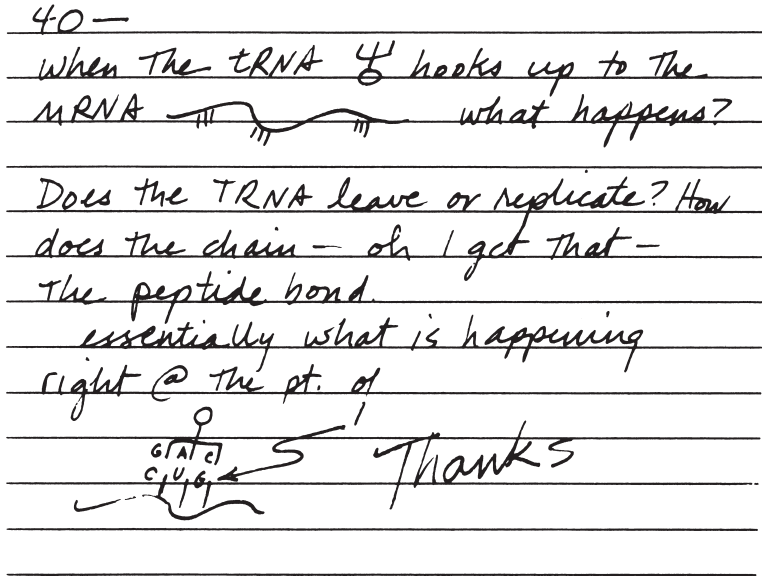 40—
When The tRNA hooks up to The
mRNA what happens?
Does the TRNA leave or replicate? How
does the chain — oh I get That —
The peptide bond.
essentially what is happening
right @ The pt. of
G A C
C U G
Thanks